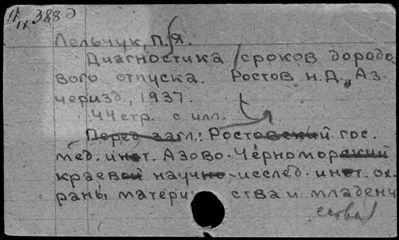 11/11 388д
Лельчук, П. Я.
Диагностика сроков дородо
вого отпуска. Ростов н. Д., Аз.
черизд., 1937.
44 стр. с илл.
Перед загл.: Ростовский гос.
мед. инст. Азово-Черноморский
краевой научно-исслед. инст. ох-
раны матери ства и младенч
ества